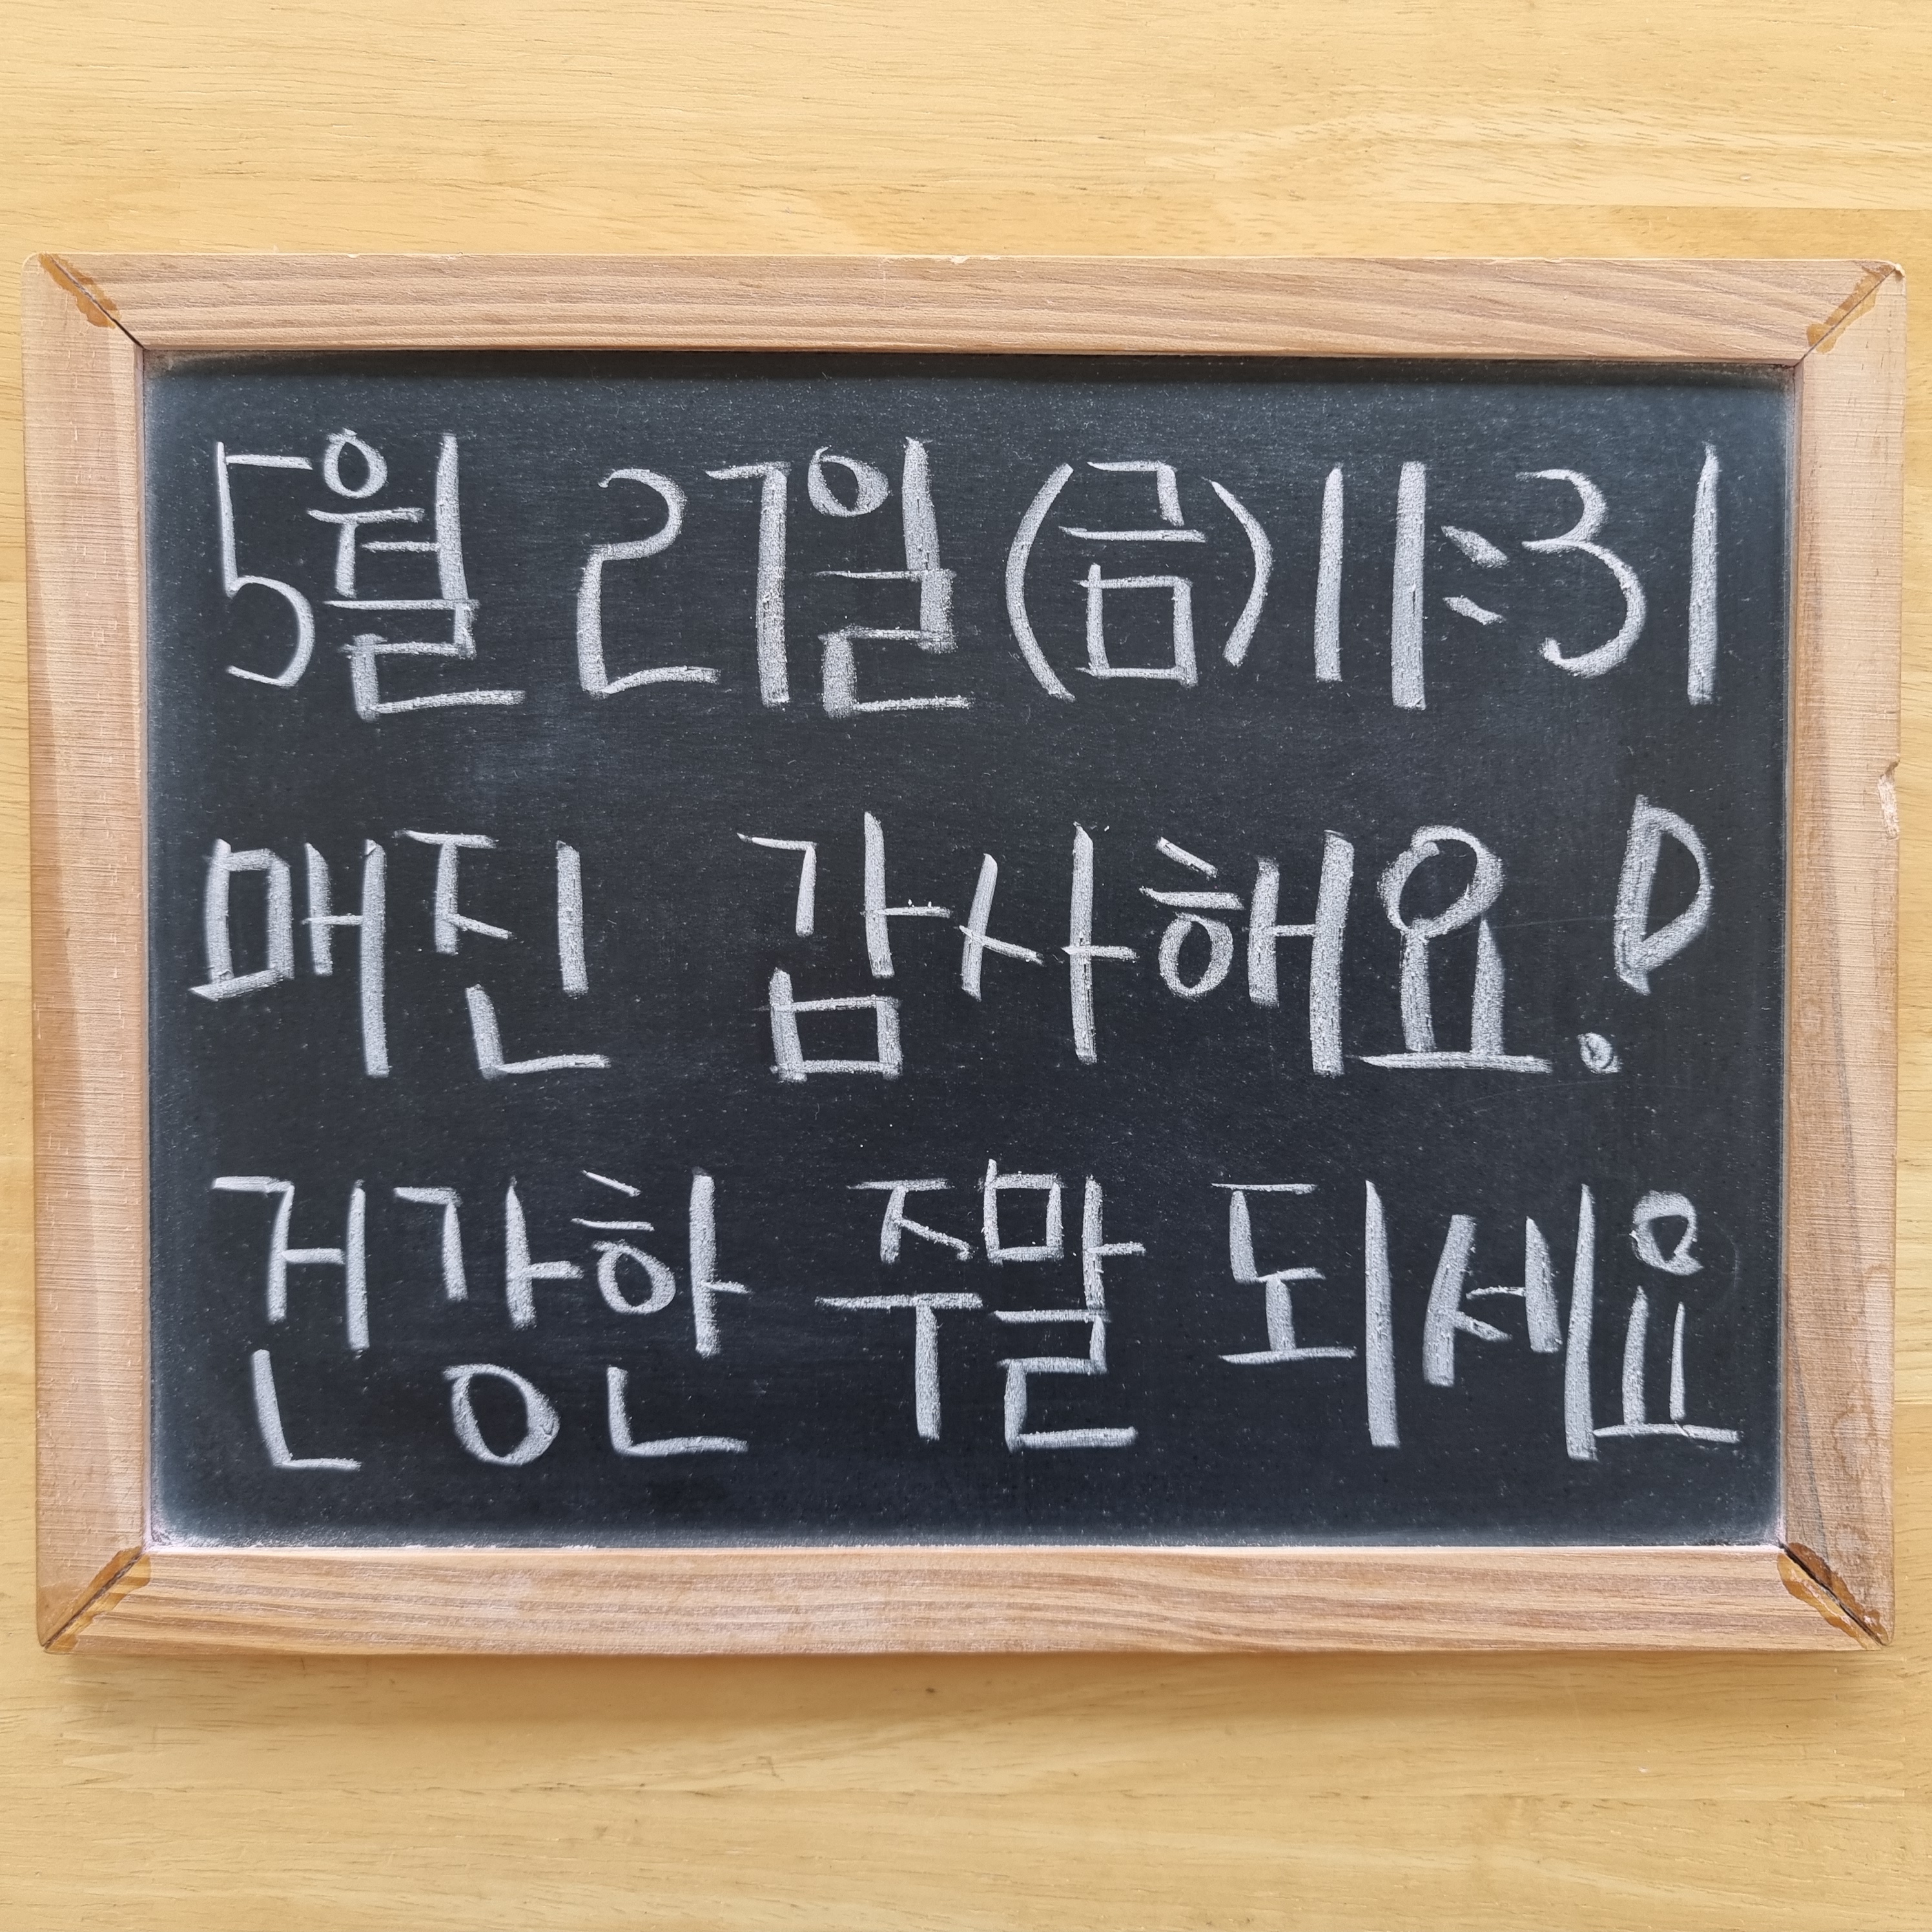 5월 27일(금)11:31
매진 감사해요!
건강한 주말 되세요